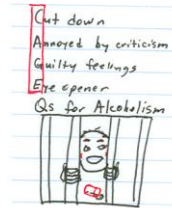 Cut down
Annoyed by criticism
Guilty feelings
Eye opener
Qs for Alcoholism